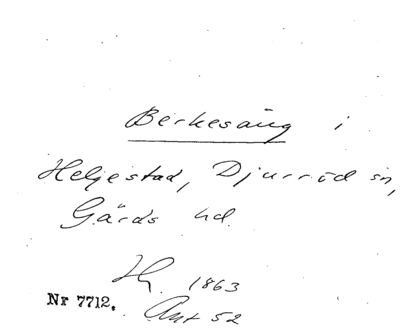 Berkesäng i
Heljestad, Djurröd sn,
Gärds hd.
Hy. 1863
Nr 7712. Ant 52